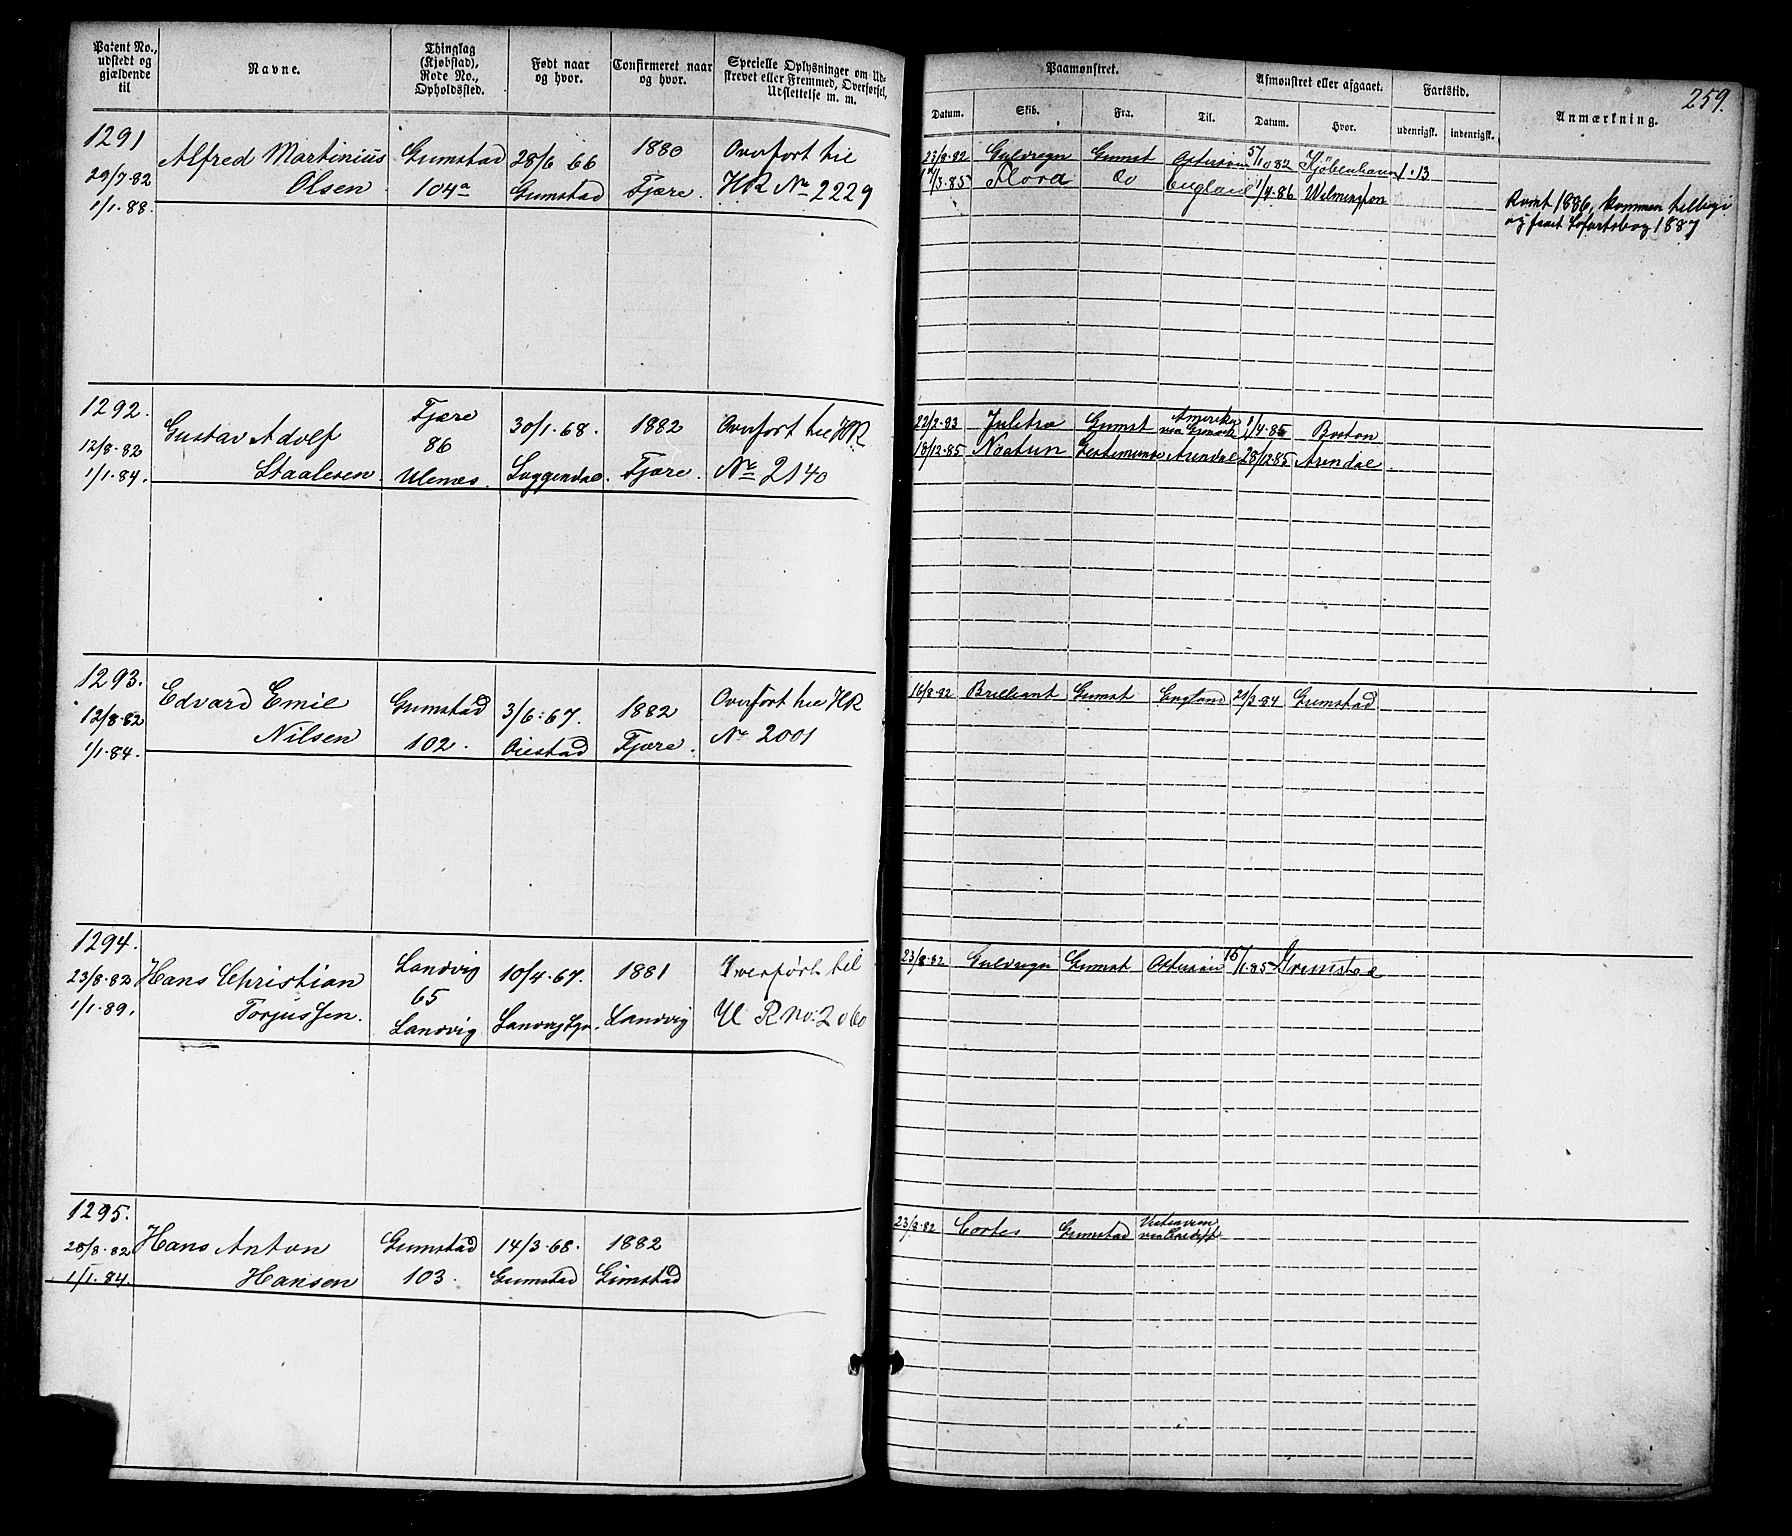 259.
Patent No., udstedt og gjældende til
Navne.
Thinglag (Kjøbstad), Rode No., Opholdssted.
Født naar og hvor.
Confirmeret naar og hvor.
Specielle Oplysninger om Udskrevet eller Fremmed, Overførsel, Udslettelse m. m.
Paamønstret.
Afmønstret eller afgaaet.
Fartstid.
Anmærkning.
Datum. Skib. Fra. Til. Datum. Hvor. udenrigsk. indenrigsk.
1291
29/7-82
1/1-88.
Alfred Martinius
Olsen
Grimstad
104a
28/6 66
Grimstad
1880
Fjære.
Overfort til
HR No 2229
23/8-82 Guldregn Grimst Østersøen 5/10 82 Kjøbenhavn 1.13
/3-85 Flora do England 1/4-86 Wilmington
Rømt 1886, kommen tilbage
og faaet Søfartsbog 1887
1292.
12/8-82
1/1-84.
Gustav Adolf
Staalesen
Fjære
86
Ulenes.
30/1-68.
1882
Fjære.
Overfort til HR
No 2140
22/2-83 Grimst Amerika 1/4-85 Boston
18/12-85 Arendal 28/12 85 Arendal
1293.
12/8-82
1/1-84.
Edvard Emil
Nilsen
Grimstad
102.
3/6-67.
Oiestad
1882
Fjære.
Overfort til HR
No 2001
16/8-82 Brilliant Grimst England 21/2-84 Grimstad
1294.
23/8-82
1/1-89.
Hans Christian
Torjussen.
Landvig
65
Landvig
10/4-67.
1881
Landvig
Overført til
U R no. 2060
23/8-82 Guldregn Grimst Østersøen 15/1-85 Grimstad
1295.
28/8-82
1/1-84.
Hans Anton
Hansen
Grimstad
103.
14/3-68.
Grimstad
1882
Grimstad
23/8-82 Cortes Grimstad